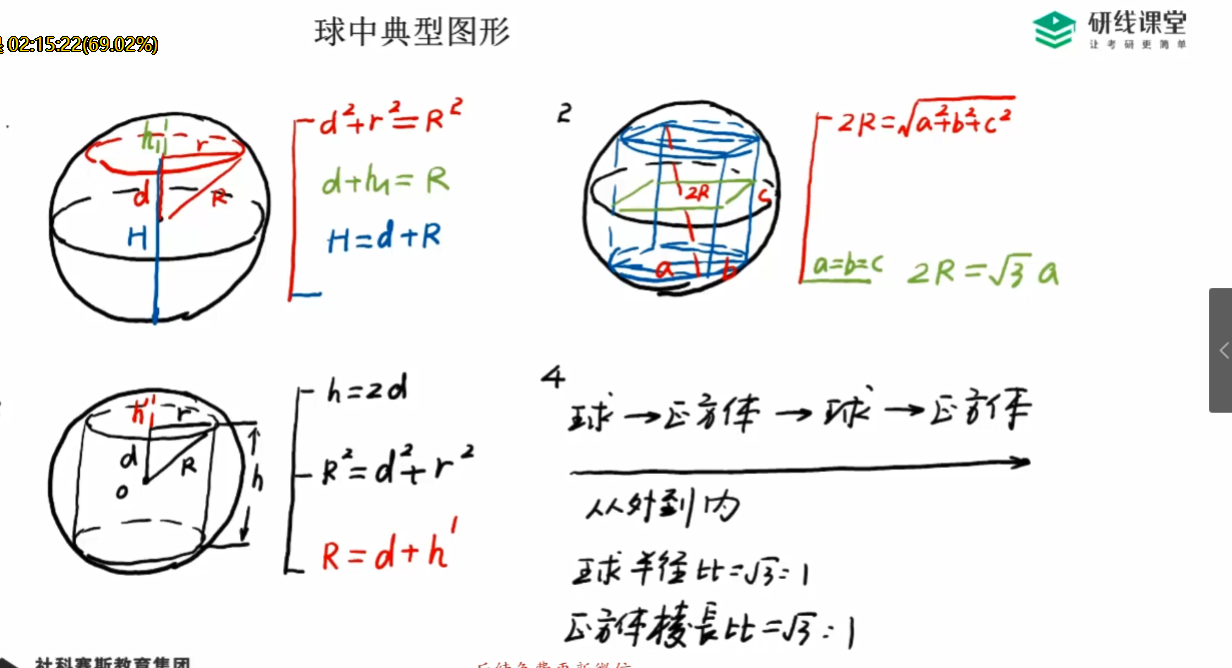 02:15:22(69.02%)
球中典型图形
研线课堂
让考研更简单
h₁
r
d
R
H
d²+r²=R²
d+h₁=R
H=d+R
2
2R
c
a
b
2R=√(a²+b²+c²)
a=b=c 2R=√3 a
h'
r
d
R
o
h
h=2d
R²=d²+r²
R=d+h'
4
球→正方体→球→正方体
从外到内
球半径比=√3:1
正方体棱长比=√3:1
社科赛斯教育集团